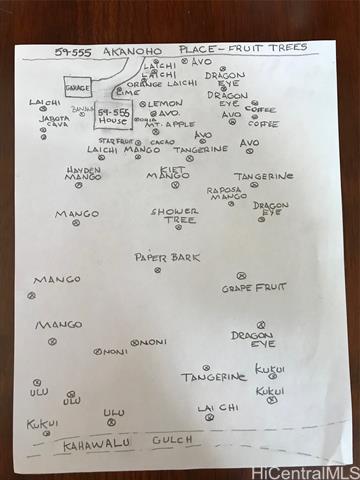 59-555 AKANOHO PLACE-FRUIT TREES
LAICHI AVO
LAICHI
DRAGON EYE
GARAGE
ORANGE LAICHI
LIME
DRAGON EYE
LAICHI
LEMON
COFFEE
BANANA
59-555 House
AVO.
JABOTA CAVA
MT. APPLE
AVO
COFFEE
STARFRUIT CACAO
AVO
LAICHI MANGO TANGERINE
AVO
HAYDEN MANGO
KIET MANGO
TANGERINE
RAPOSA MANGO
MANGO
SHOWER TREE
DRAGON EYE
PAPER BARK
MANGO
GRAPE FRUIT
MANGO
DRAGON EYE
NONI
NONI
TANGERINE
KUKUI
ULU
ULU
KUKUI
LAI CHI
KUKUI
ULU
KAHAWALU GULCH
HiCentralMLS